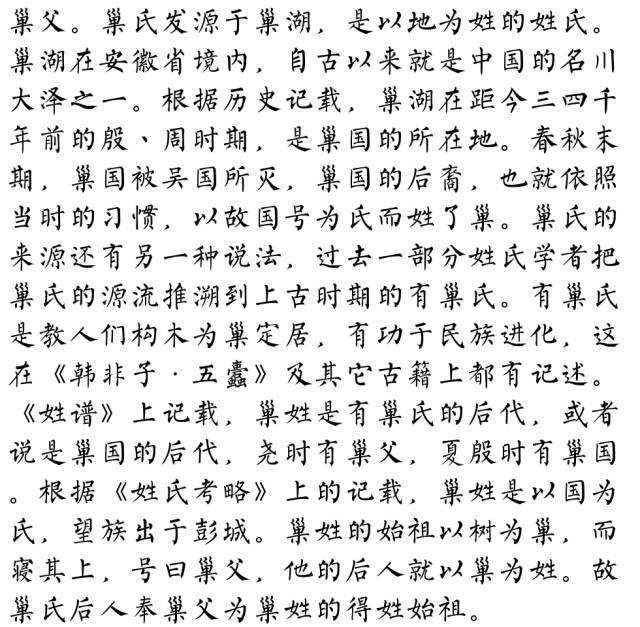 巢父。巢氏发源于巢湖，是以地为姓的姓氏。
巢湖在安徽省境内，自古以来就是中国的名川
大泽之一。根据历史记载，巢湖在距今三四千
年前的殷、周时期，是巢国的所在地。春秋末
期，巢国被吴国所灭，巢国的后裔，也就依照
当时的习惯，以故国号为氏而姓了巢。巢氏的
来源还有另一种说法，过去一部分姓氏学者把
巢氏的源流推溯到上古时期的有巢氏。有巢氏
是教人们构木为巢定居，有功于民族进化，这
在《韩非子·五蠹》及其它古籍上都有记述。
《姓谱》上记载，巢姓是有巢氏的后代，或者
说是巢国的后代，尧时有巢父，夏殷时有巢国
。根据《姓氏考略》上的记载，巢姓是以国为
氏，望族出于彭城。巢姓的始祖以树为巢，而
寝其上，号曰巢父，他的后人就以巢为姓。故
巢氏后人奉巢父为巢姓的得姓始祖。